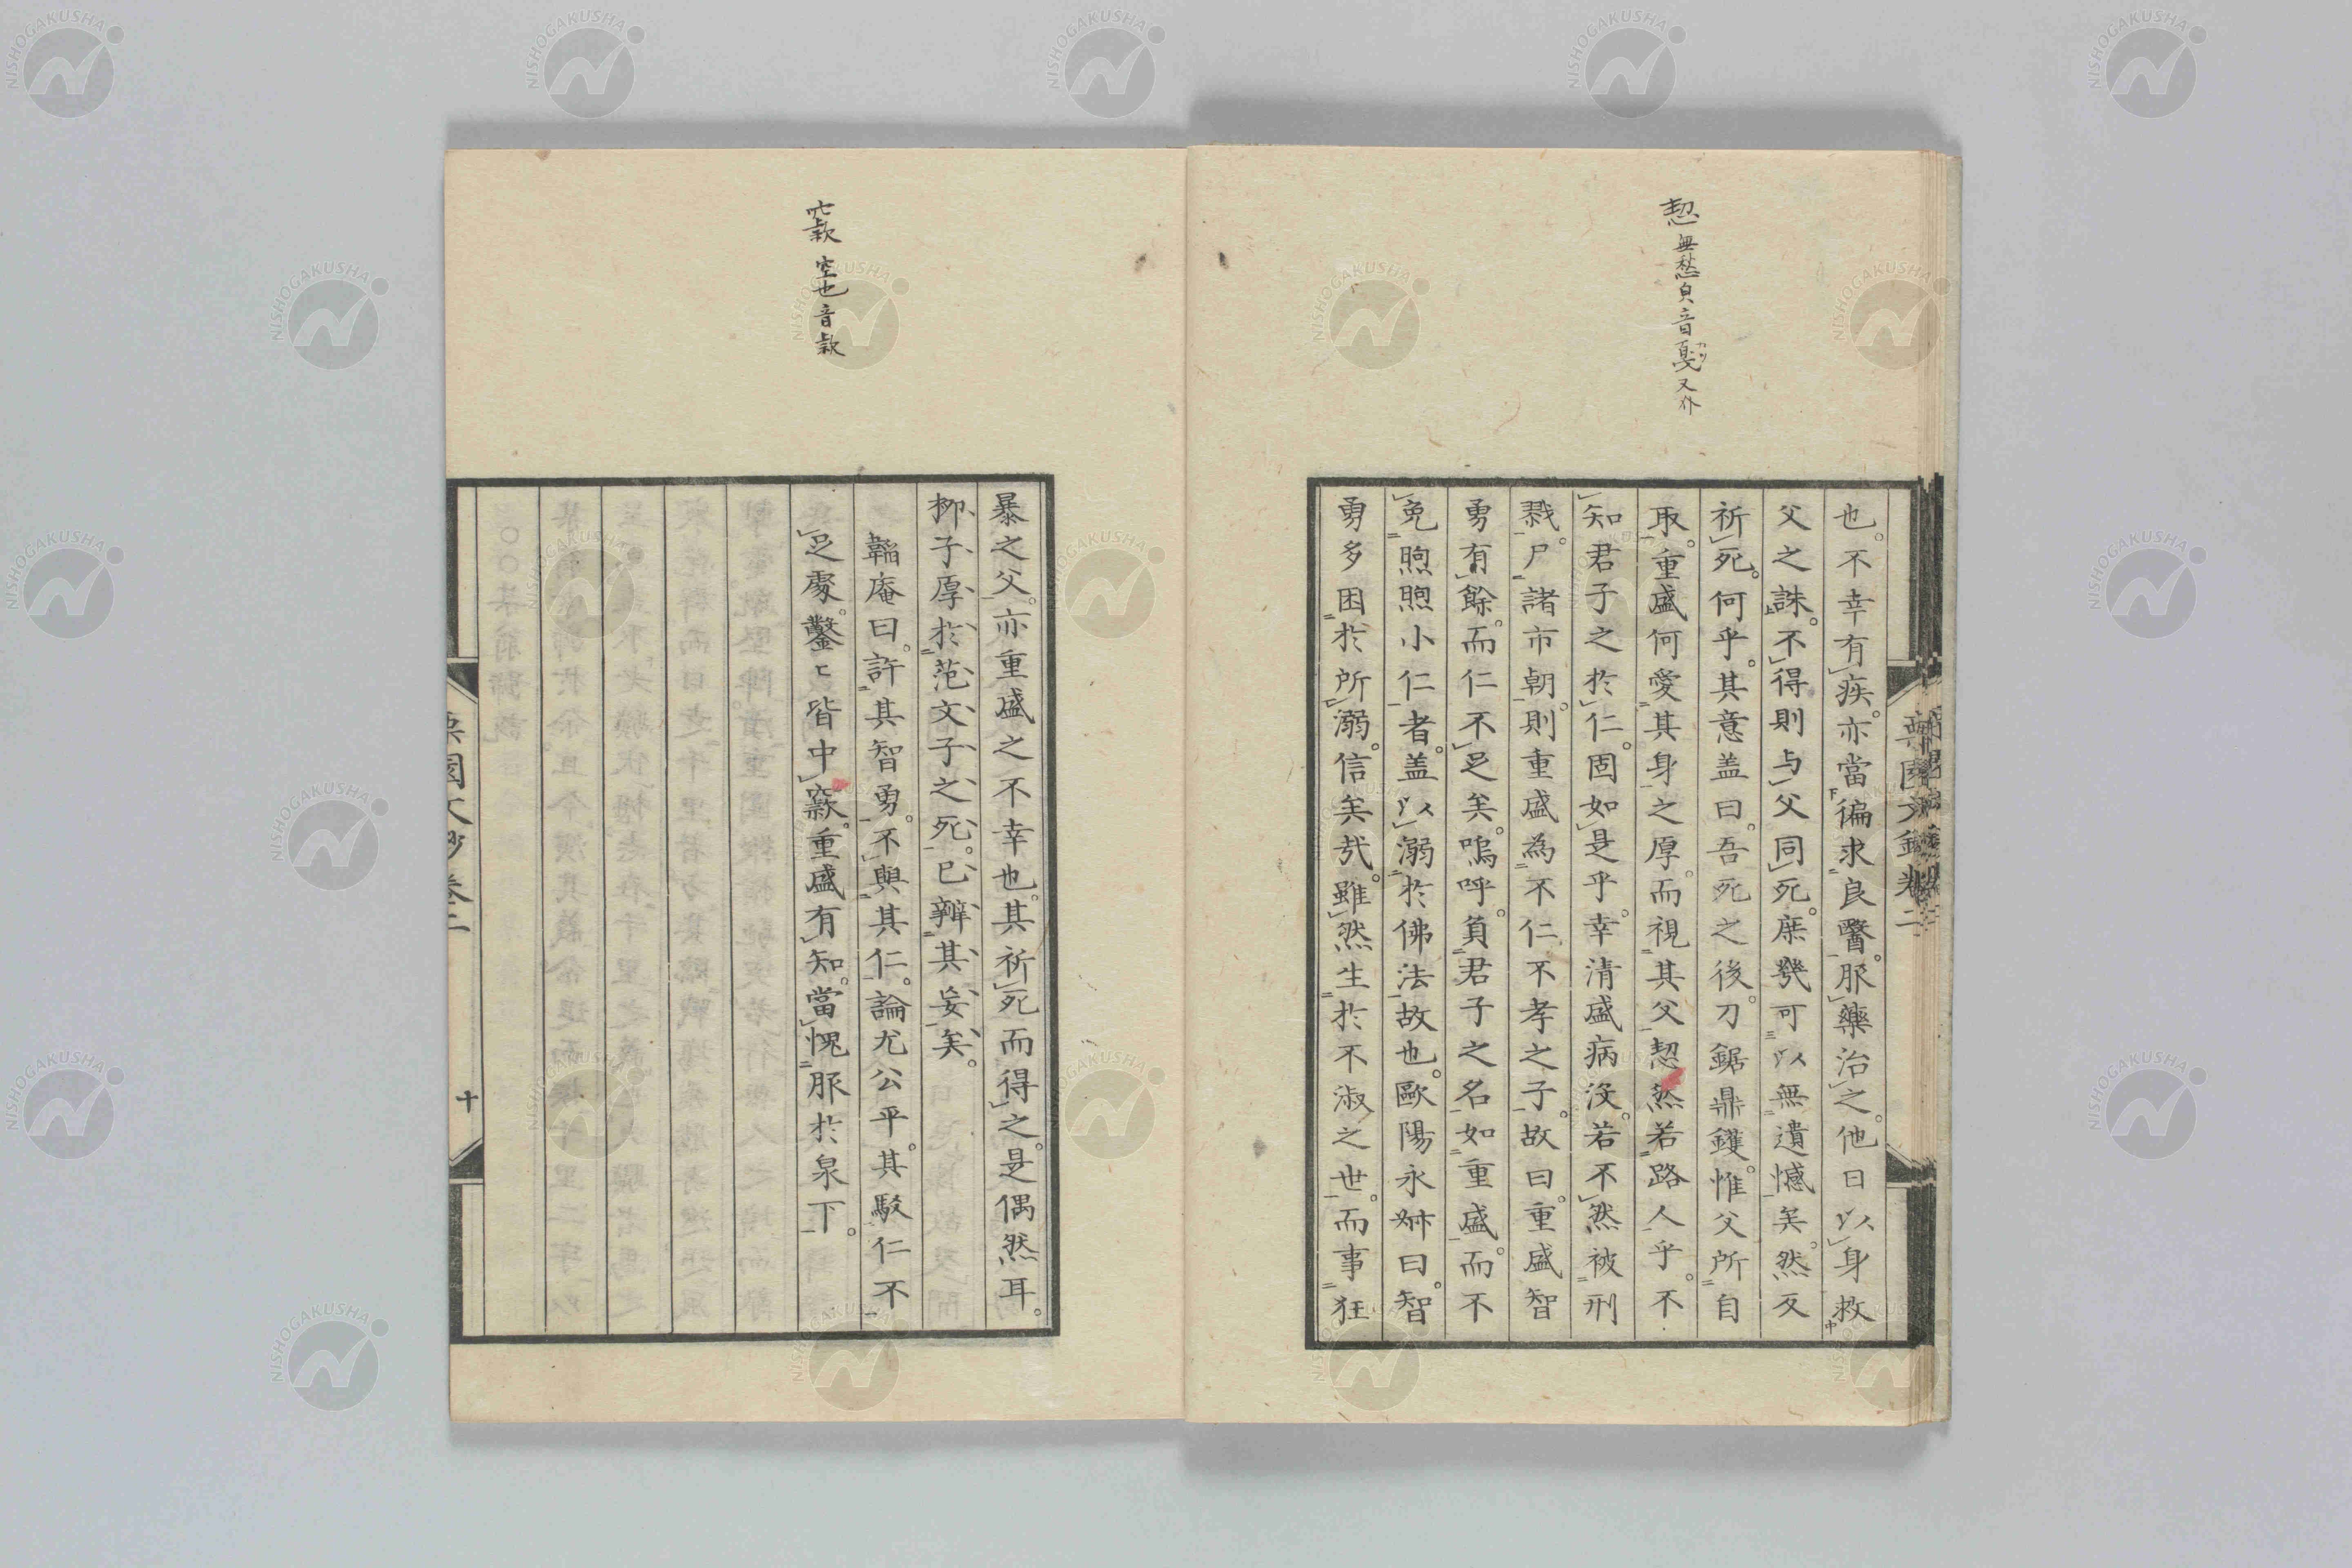 恝 無愁皃音戞カツ又外
也。不幸有疾。亦當徧求良醫。服藥治之。他日以身救
父之誅。不得則与父同死。庶幾可以無遺憾矣。然反
祈死。何乎。其意盖曰。吾死之後。刀鋸鼎鑊。惟父所自
取。重盛何愛其身之厚。而視其父恝然若路人乎。不
知君子之於仁。固如是乎。幸清盛病没。若不然被刑
戮。尸諸市朝。則重盛為不仁不孝之子。故曰。重盛智
勇有餘。而仁不足矣。嗚呼。負君子之名如重盛。而不
免煦煦小仁者。盖以溺於佛法故也。歐陽永叔曰。智
勇多困於所溺。信矣哉。雖然生於不淑之世。而事狂
窾 空也音款
暴之父。亦重盛之不幸也。其祈死而得之。是偶然耳。
柳子厚於范文子之死。已辨其妄矣。
韞庵曰。許其智勇。不與其仁。論尤公平。其駁仁不
足處。鑿〻皆中窾。重盛有知。當愧服於泉下。
栗園文鈔卷二
十